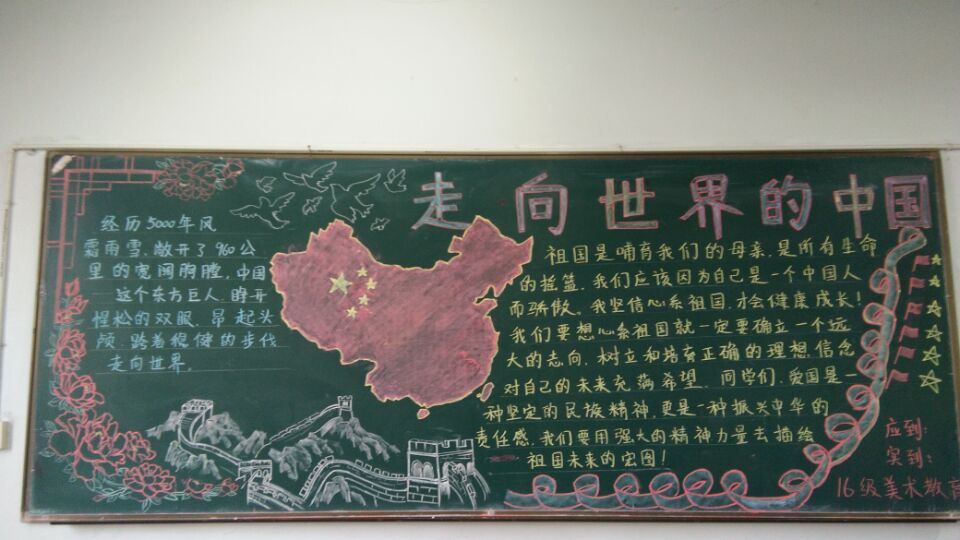 走向世界的中国
经历5000年风
霜雨雪,敞开了960公
里的宽阔胸膛,中国
这个东方巨人,睁开
惺松的双眼,昂起头
颅,跨着稳健的步伐
走向世界。
祖国是哺育我们的母亲,是所有生命
的摇篮,我们应该因为自己是一个中国人
而骄傲。我坚信心系祖国,才会健康成长!
我们要想心系祖国就一定要确立一个远
大的志向,树立和培育正确的理想,信念
对自己的未来充满希望。同学们,爱国是一
种坚定的民族精神,更是一种振兴中华的
责任感,我们要用强大的精神力量去描绘
祖国未来的宏图!
应到:
实到:
16级美术教育